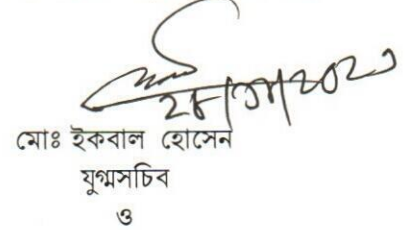 মোঃ ইকবাল হোসেন
যুগ্মসচিব
ও